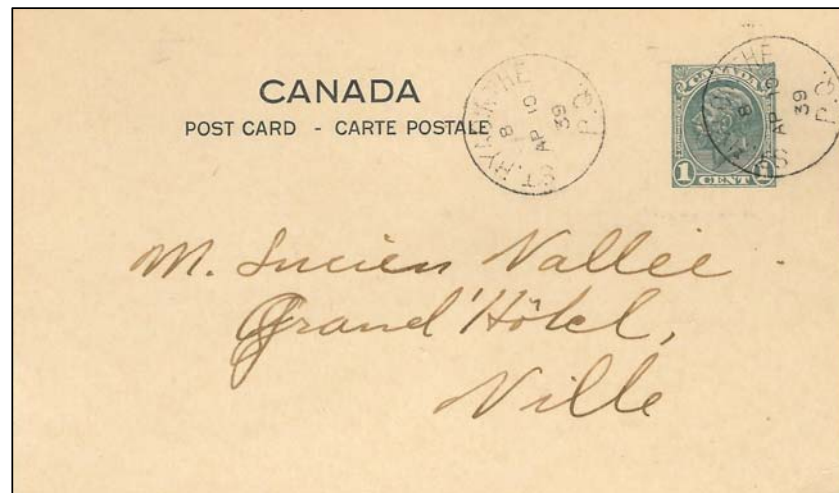 CANADA
POST CARD - CARTE POSTALE
ST. HYACINTHE
P.Q.
8
AP 10
39
CANADA
1 CENT 1
ST. HYACINTHE
P.Q.
8
AP 10
39
M. Lucien Vallée.
Grand'Hôtel,
Ville